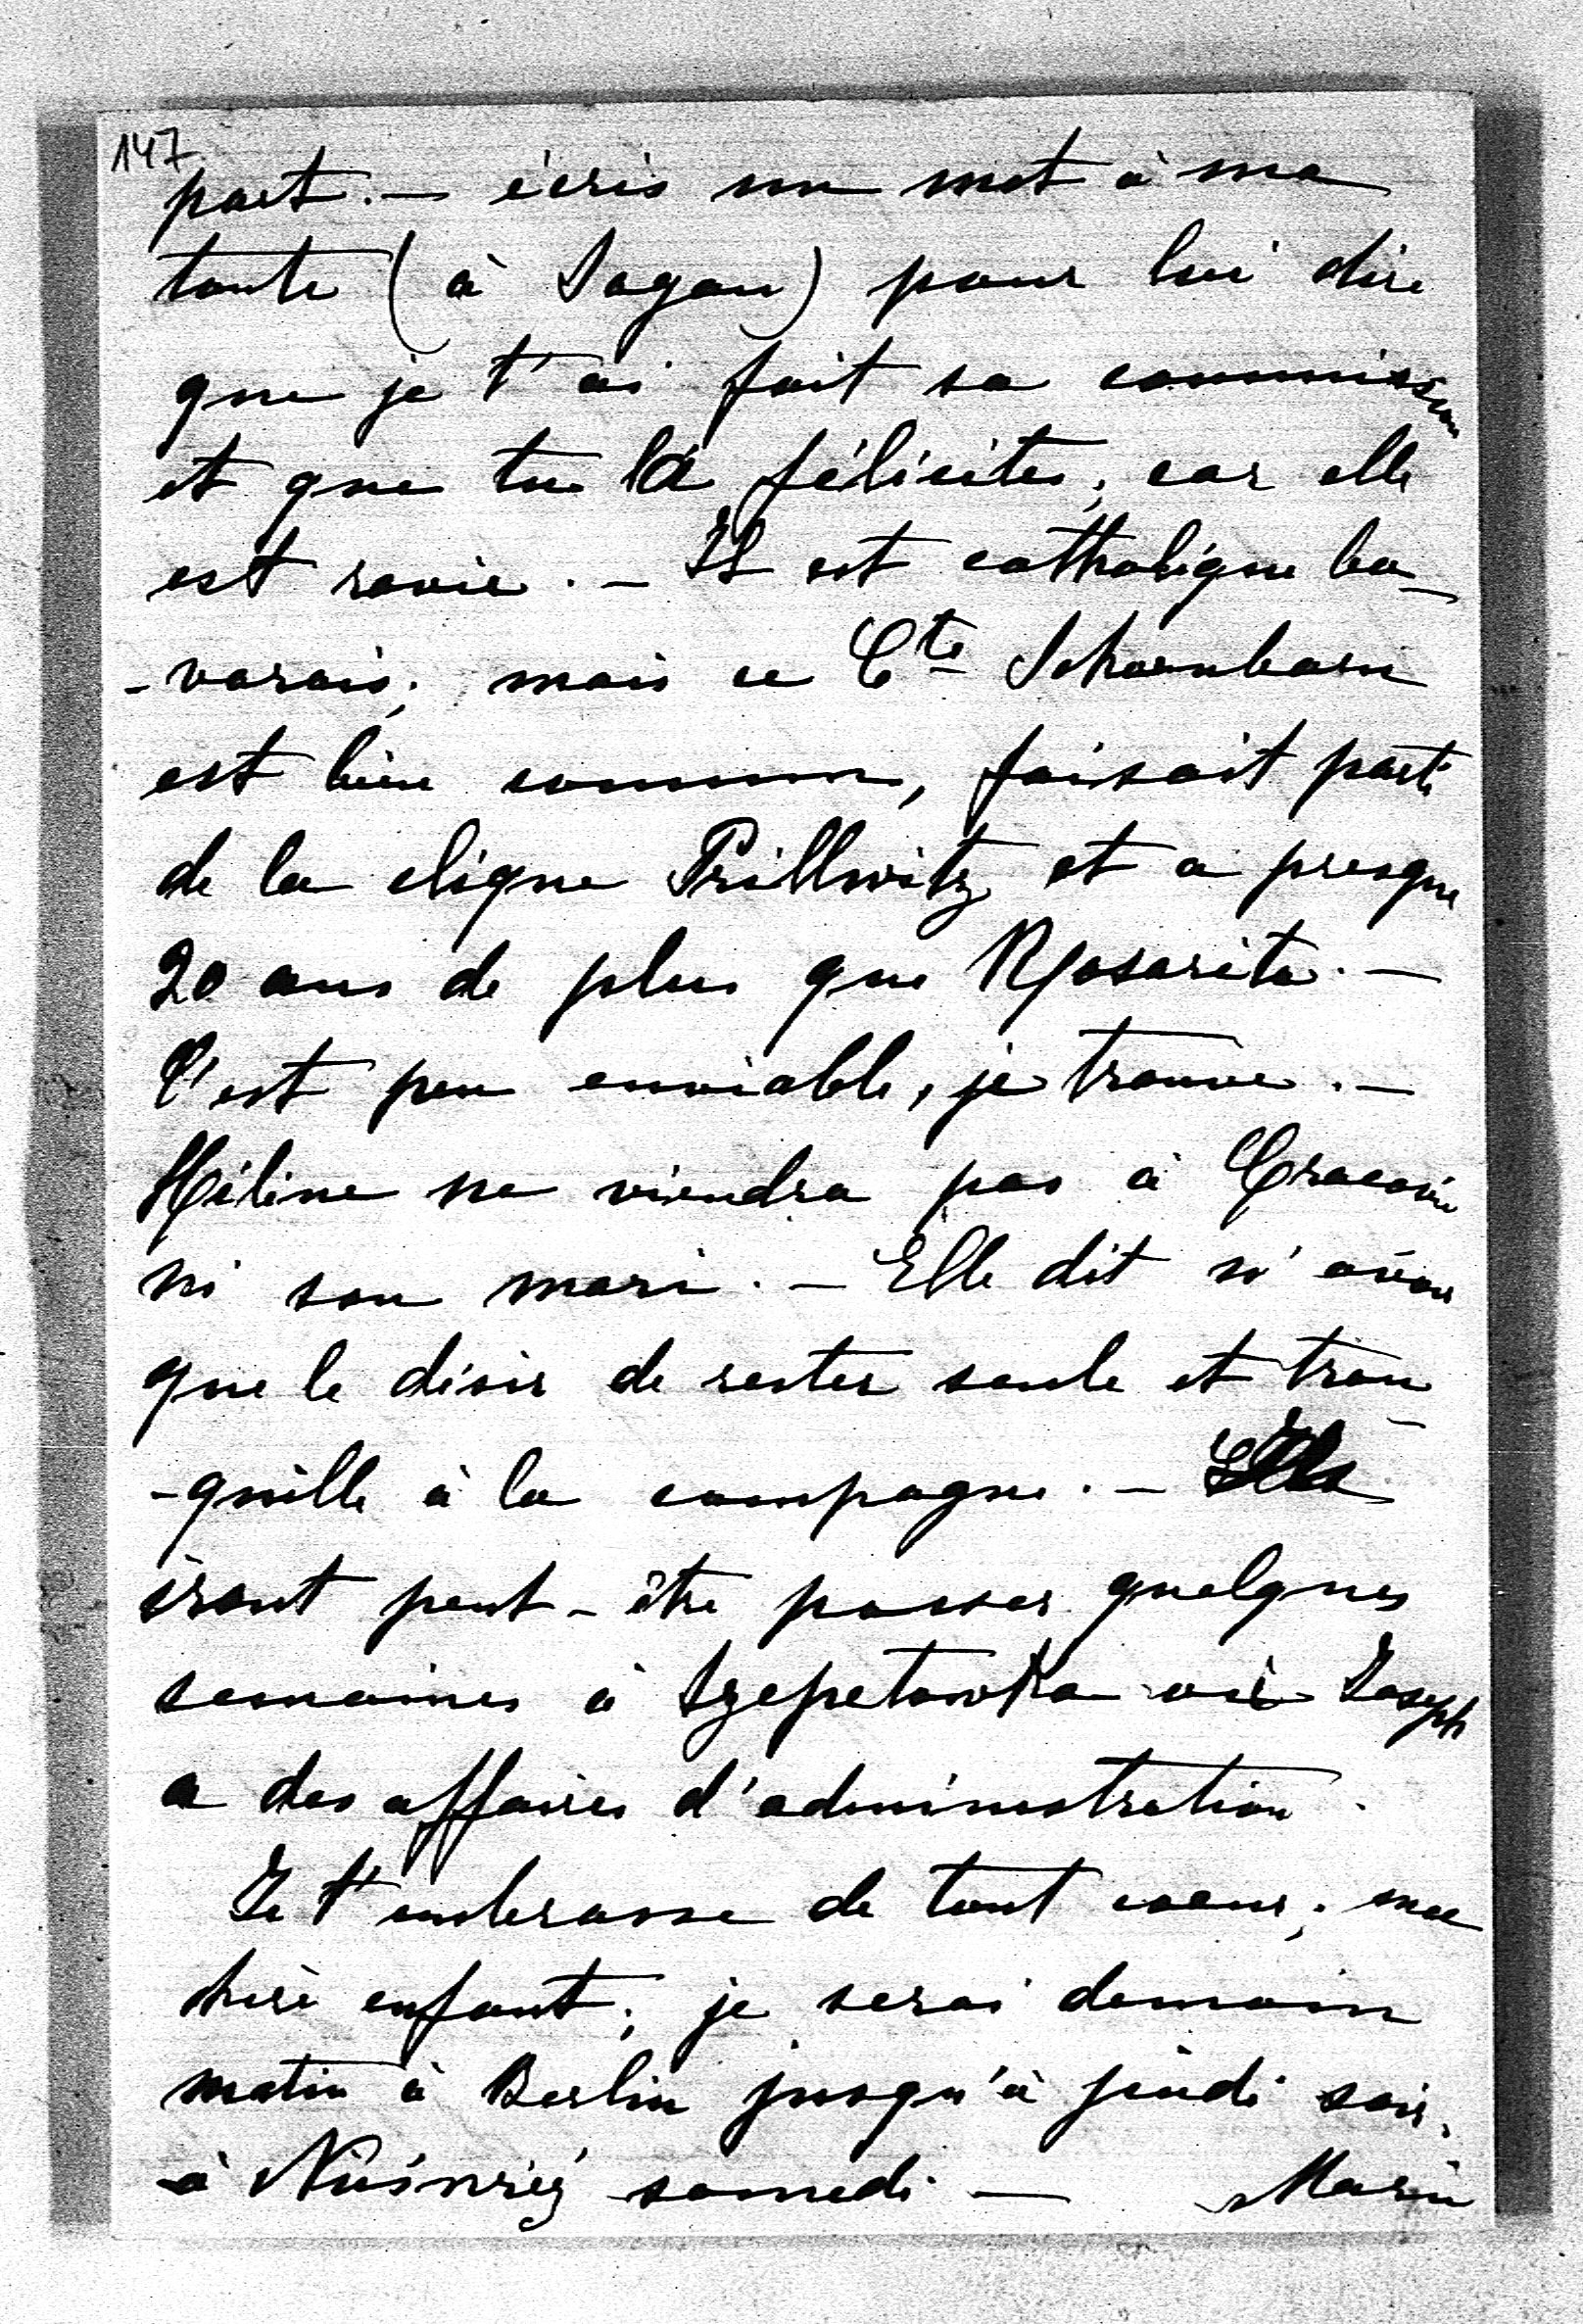 147
part. — écris un mot à ma
tante (à Sagan) pour lui dire
que je t'ai fait sa commission
et que tu la félicites, car elle
est ravie. — Il est catholique ba-
-varois, mais ce Cte Schoenborn
est bien commun, faisait partie
de la clique Prillwitz et a presque
20 ans de plus que Rosarita. —
C'est peu enviable, je trouve. —
Hélène ne viendra pas à Cracovie
ni son mari. — Elle dit n'avoir
que le désir de rester seule et tran-
-quille à la campagne. — Ils
iront peut-être passer quelques
semaines à Szepetowka où Joseph
a des affaires d'administration.
Je t'embrasse de tout coeur, ma
chère enfant, je serai demain
matin à Berlin jusqu'à jeudi soir,
à Nieśwież samedi — Marie